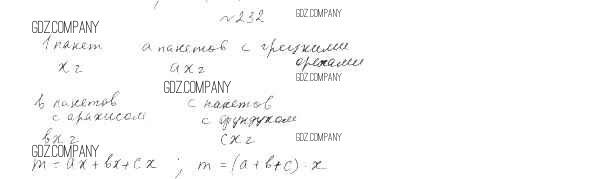 №232
GDZ.COMPANY
GDZ.COMPANY
1 пакет a пакетов с грецкими
орехами
x г ax г
GDZ.COMPANY
GDZ.COMPANY
b пакетов c пакетов
с арахисом с фундуком
bx г cx г
GDZ.COMPANY
GDZ.COMPANY
m = ax + bx + cx ; m = (a + b + c) · x